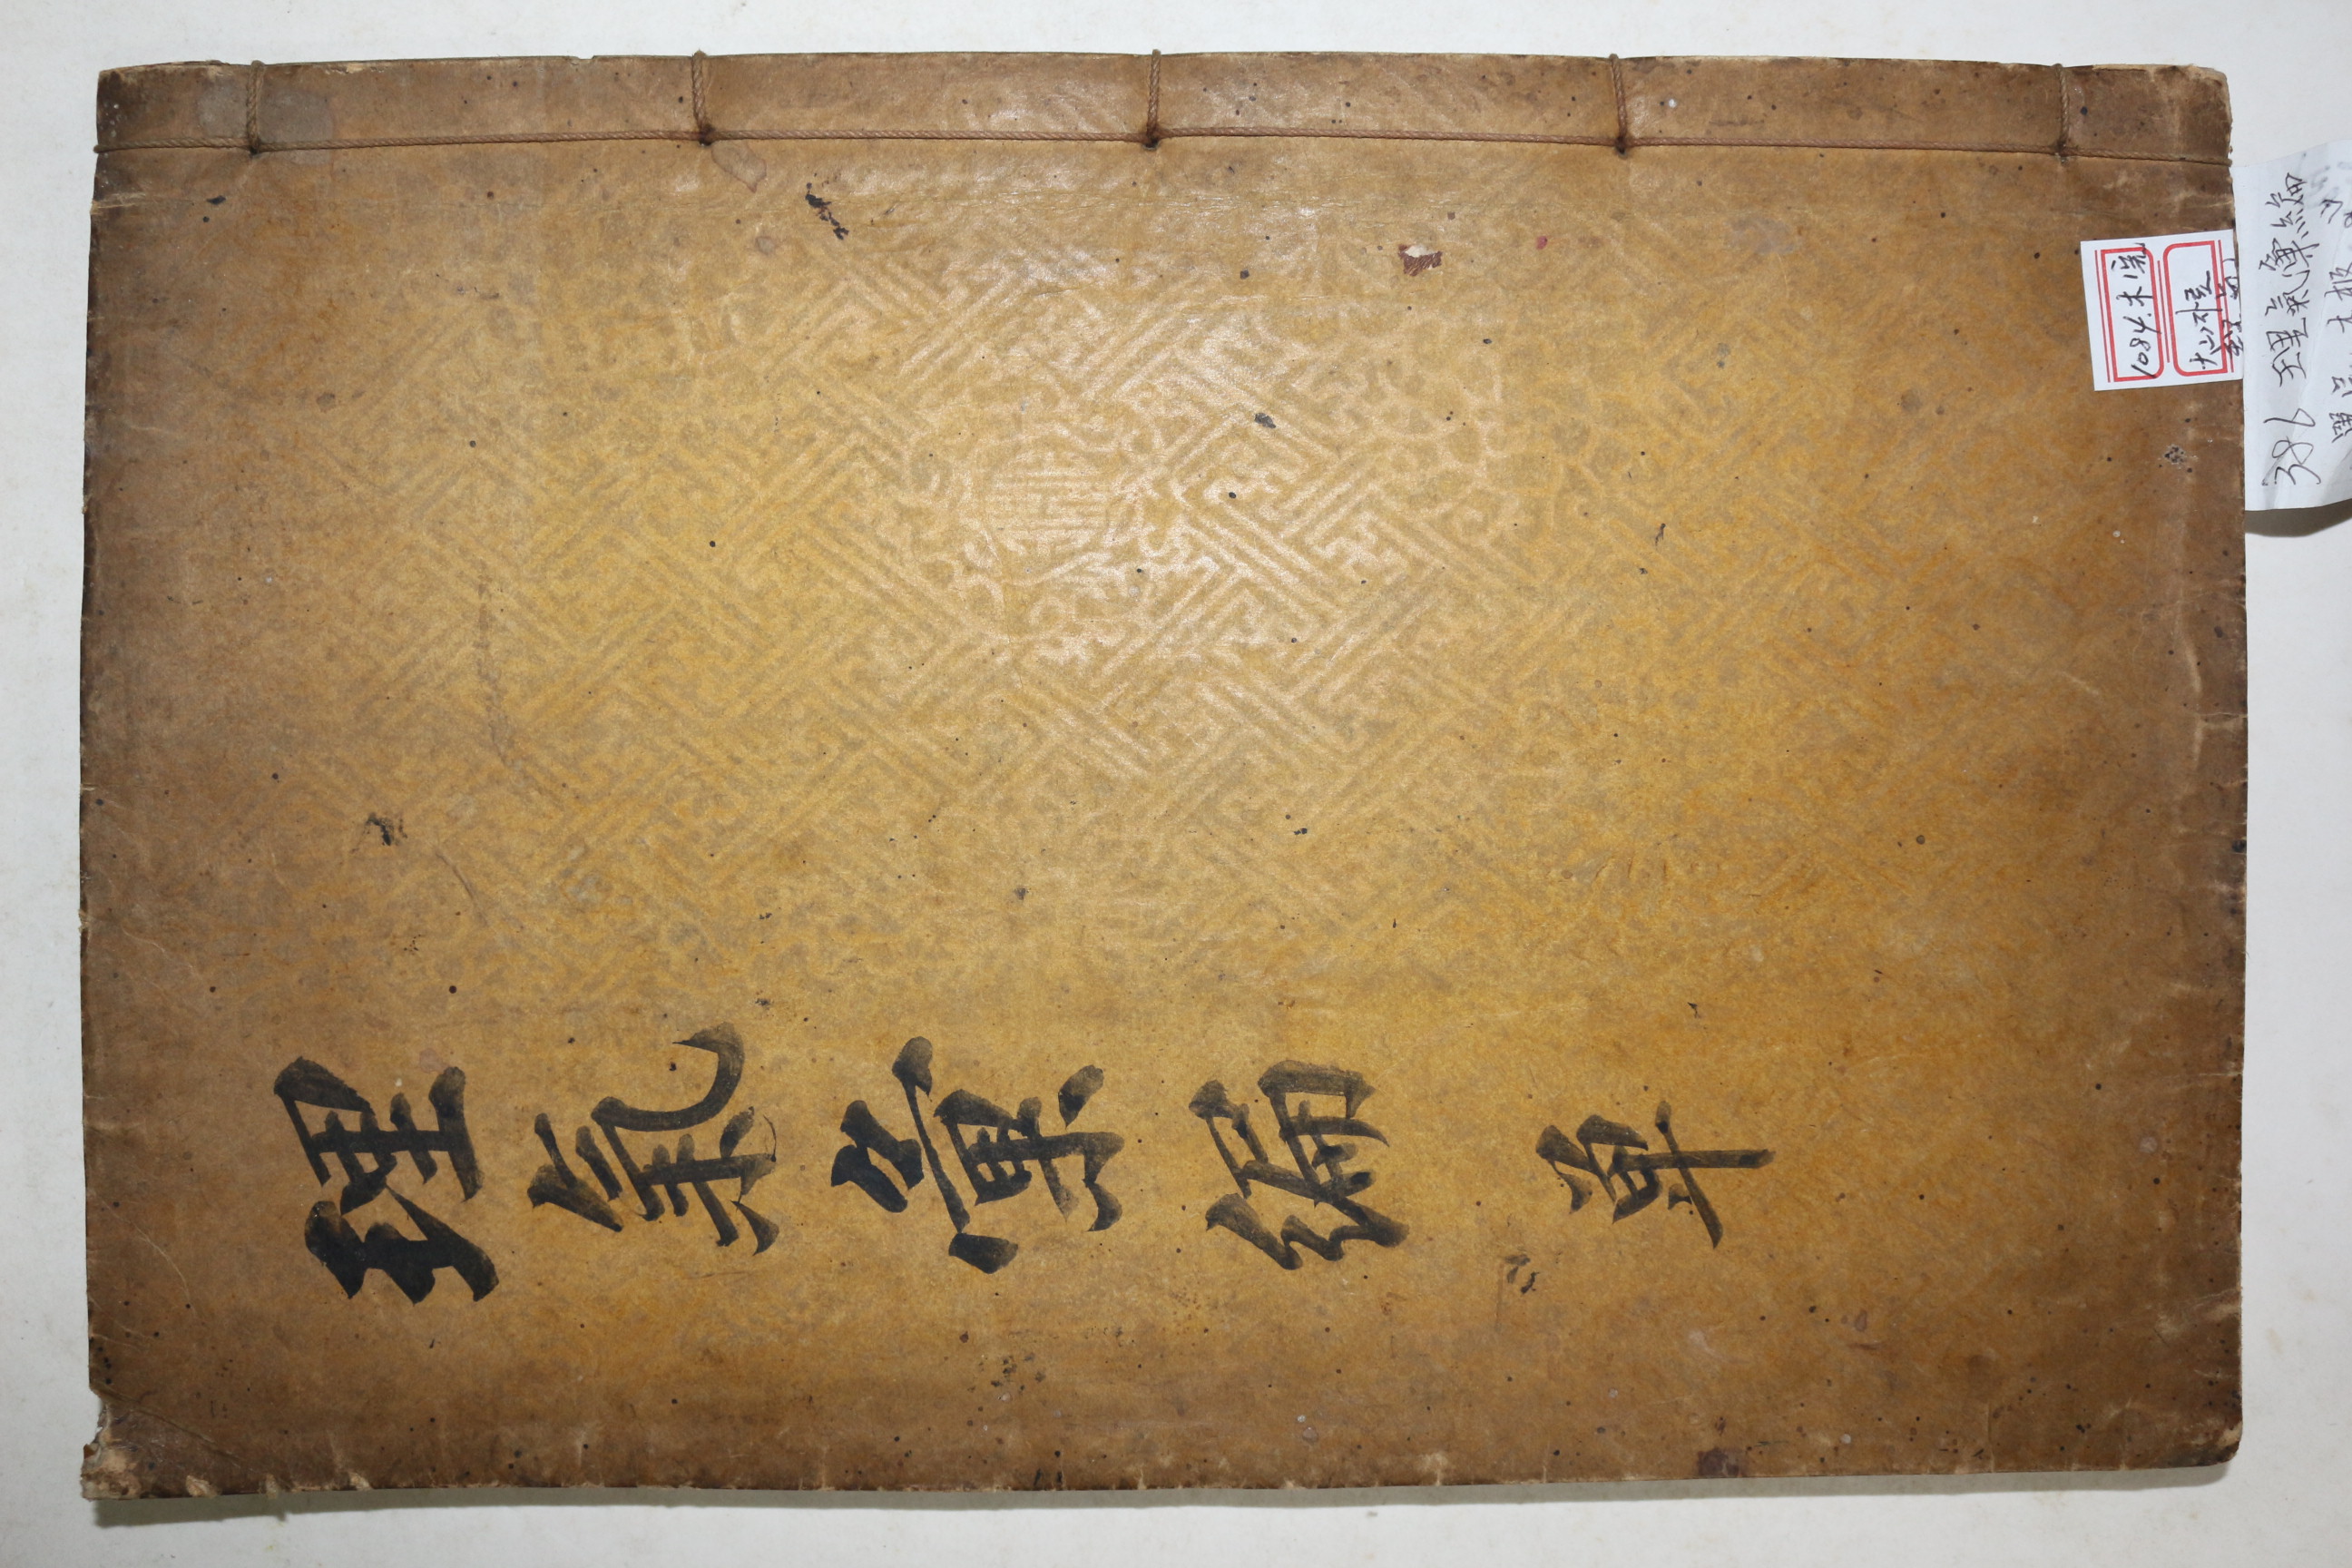 理氣彙編 单
1084. 木 完
386 理氣彙編